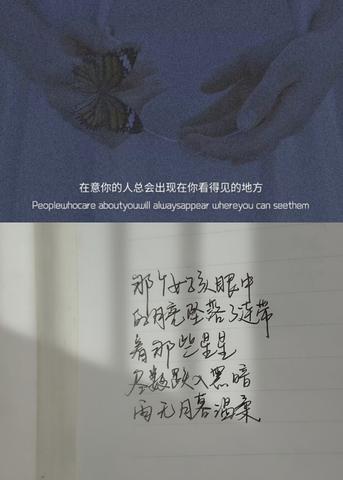 在意你的人总会出现在你看得见的地方
Peoplewhocare aboutyouwill alwaysappear whereyou can seethem
那个女孩眼中
的月亮坠落了连带
着那些星星
尽数跌入黑暗
再无月暮温柔